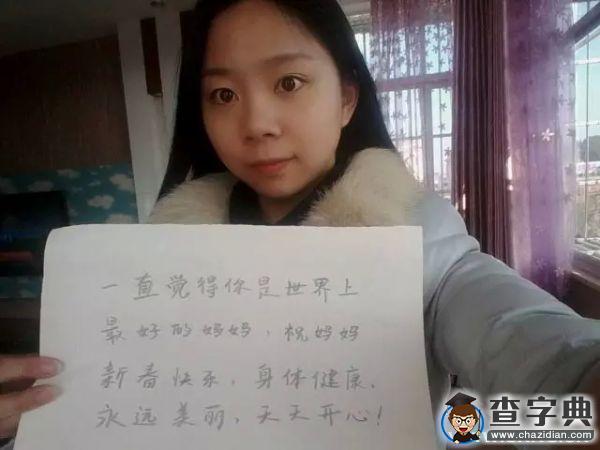 一直觉得你是世界上
最好的妈妈，祝妈妈
新春快乐，身体健康、
永远美丽，天天开心！
查字典
www.chazidian.com